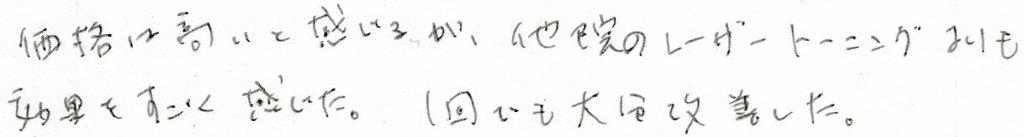 価格は高いと感じるが、他院のレーザートーニングよりも
効果をすごく感じた。1回でも大分改善した。